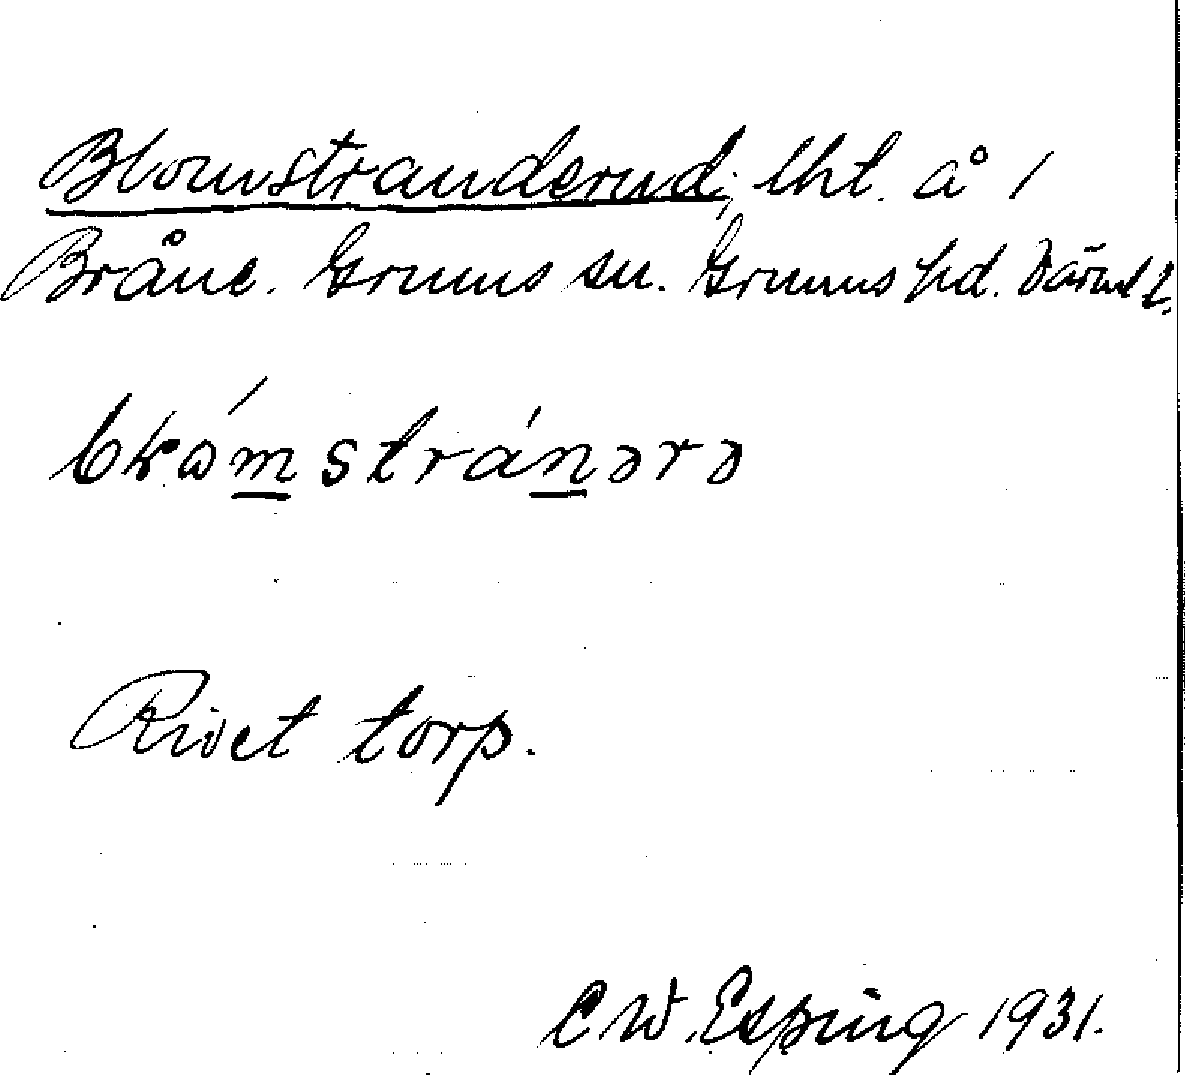 Blomstranderud, lht. å 1
Bråne. Grums sn. Grums hd. Värml l.
bɤɷ́mstránərə
Rivet torp.
C W. Esping 1931.